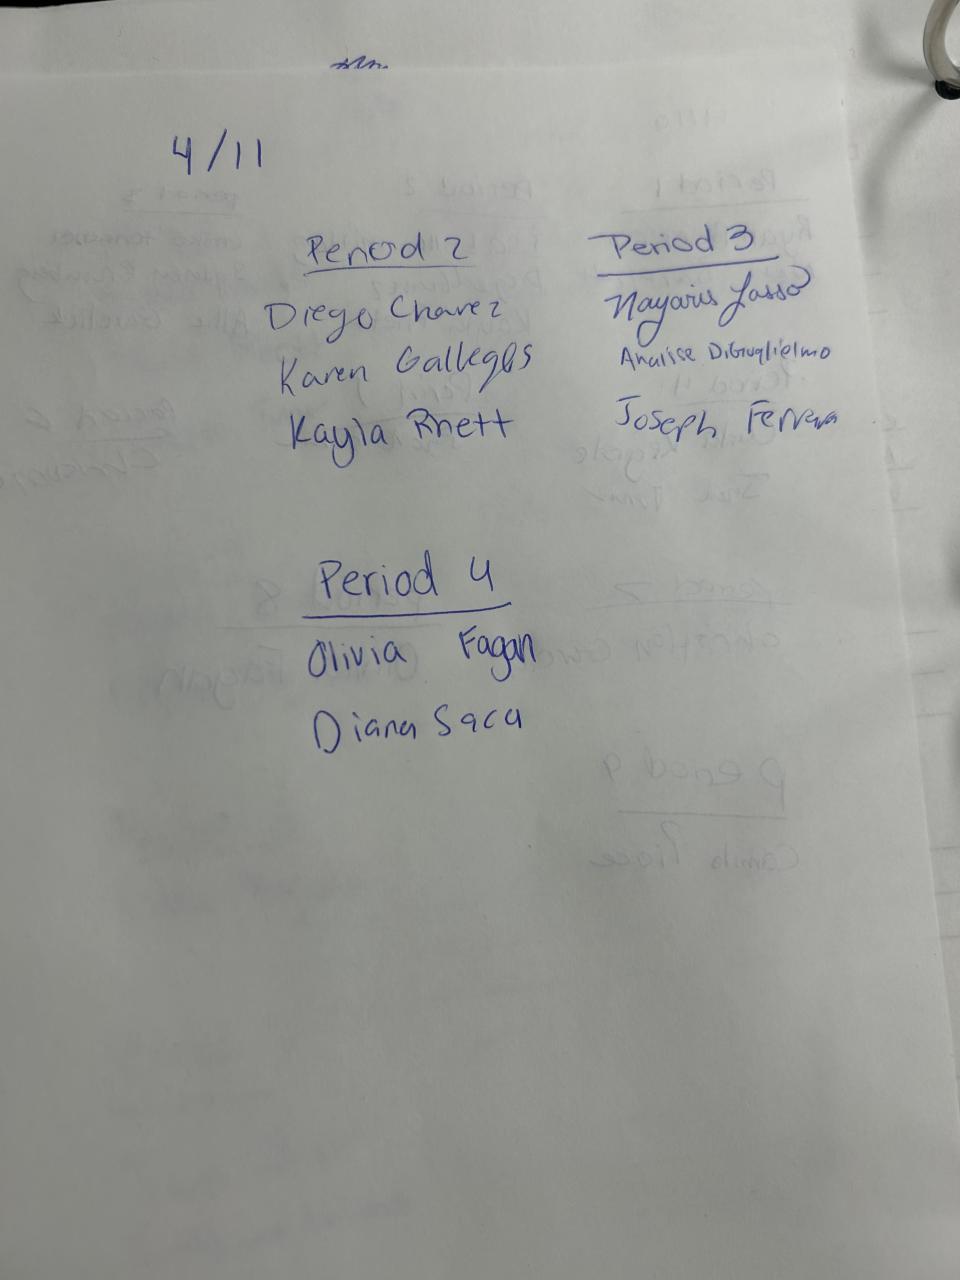 4/11
Period 2
Diego Chavez
Karen Gallegos
Kayla Rhett
Period 3
Nayaris Lasso
Analise DiGuglielmo
Joseph Ferrara
Period 4
Olivia Fagan
Diana Saca